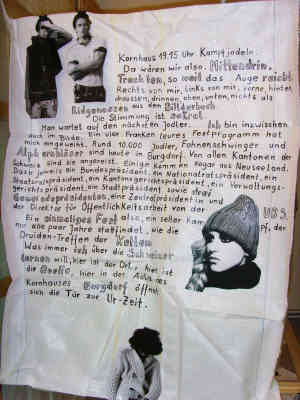 Kornhaus 19.15 Uhr Kampfjodeln.
Da wären wir also. Mittendrin.
Trachten, so weit das Auge reicht.
Rechts von mir, links von mir, vorne, hinten,
draussen, drinnen, oben, unten, nichts als
Eidgenossen aus dem Bilderbuch
Die Stimmung ist
Man wartet auf den nächsten Jodler. Ich bin inzwischen
auch im Bilde. Ein vier Franken teures Festprogramm hat
mich eingeweiht. Rund 10.000 Jodler, Fahnenschwinger und
Alphornbläser sind heute in Burgdorf. Von allen Kantonen der
Schweiz sind sie angereist. Einige kamen sogar aus Neuseeland.
Dazu jeweils ein Bundespräsident, ein Nationalratspräsident, ein
Staatsratspräsident, ein Kantonsgerichtspräsident, ein Verwaltungs-
gerichtspräsident, ein Stadtpräsident sowie drei
Gemeindepräsidenten, eine Zentralpräsidentin und
der Direktor für Öffentlichkeitsarbeit von der UBS.
Ein einmaliges Fest also, ein seltener Kampf, der
nur alle paar Jahre stattfindet, wie die
Druiden-Treffen der Kelten
Was immer ich über die Schweizer
lernen will, hier ist der Ort, hier ist
die Quelle, hier in der Aula des
Kornhauses Burgdorf öffnet
sich die Tür zur Ur-Zeit.